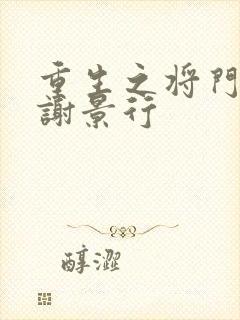 重生之将门
謝景行
醇澀